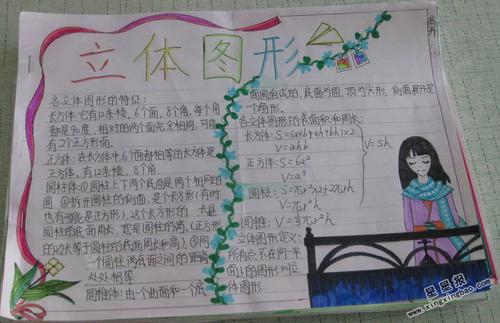 立体图形
各立体图形的特征:
长方体:它有12条棱,6个面,8个角,每个角
都是90度,相对的两个面完全相同,可能
有2个正方形面.
正方体:在长方体中,6个面都相等的长方体是
正方体,有12条棱,8个角
圆柱体:①圆柱上下两个底面是两个相同的
圆 ②拆开圆柱的侧面,是个长方形(有时
也有可能是正方形),这个长方形的 长是
圆柱的底面周长,宽是圆柱的高,(正方形
的边长等于圆柱的底面周长和高),③同
一个圆柱两底面之间的距离
处处相等
圆锥体:由一个曲面和一个底
面围组成的,底面为圆,顶为尖形,侧面展开是
个扇形.
各立体图形的表面积和周长:
长方体:S=(a×b+ah+bh)×2
V=ahb
正方体:S=6a²
V=a³
V=Sh
圆柱:S=πr²×2+2πrh
V=πr²h
圆锥:V=⅓πr²h
立体图形定义:
所有点不在同一平
面上的图形叫立
体图形
星星报
www.xingxingbao.com